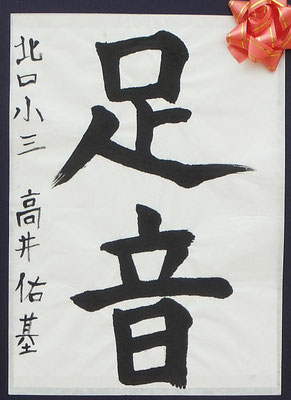 足音
北口小三 高井佑基